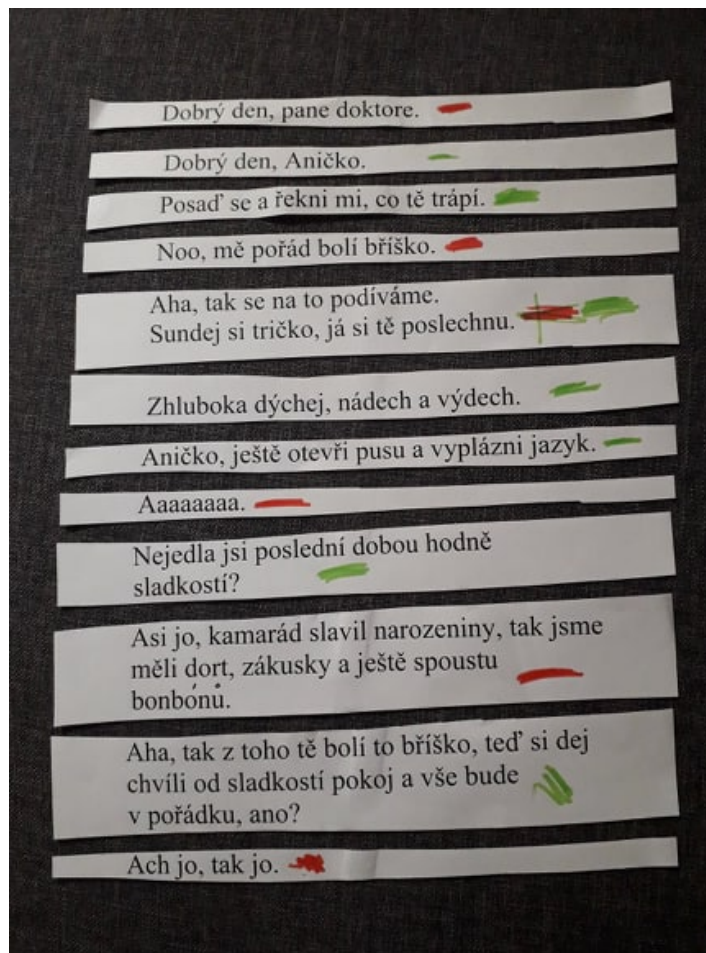 Dobrý den, pane doktore.
Dobrý den, Aničko.
Posaď se a řekni mi, co tě trápí.
Noo, mě pořád bolí bříško.
Aha, tak se na to podíváme.
Sundej si tričko, já si tě poslechnu.
Zhluboka dýchej, nádech a výdech.
Aničko, ještě otevři pusu a vyplázni jazyk.
Aaaaaaaa.
Nejedla jsi poslední dobou hodně
sladkostí?
Asi jo, kamarád slavil narozeniny, tak jsme
měli dort, zákusky a ještě spoustu
bonbónů.
Aha, tak z toho tě bolí to bříško, teď si dej
chvíli od sladkostí pokoj a vše bude
v pořádku, ano?
Ach jo, tak jo.